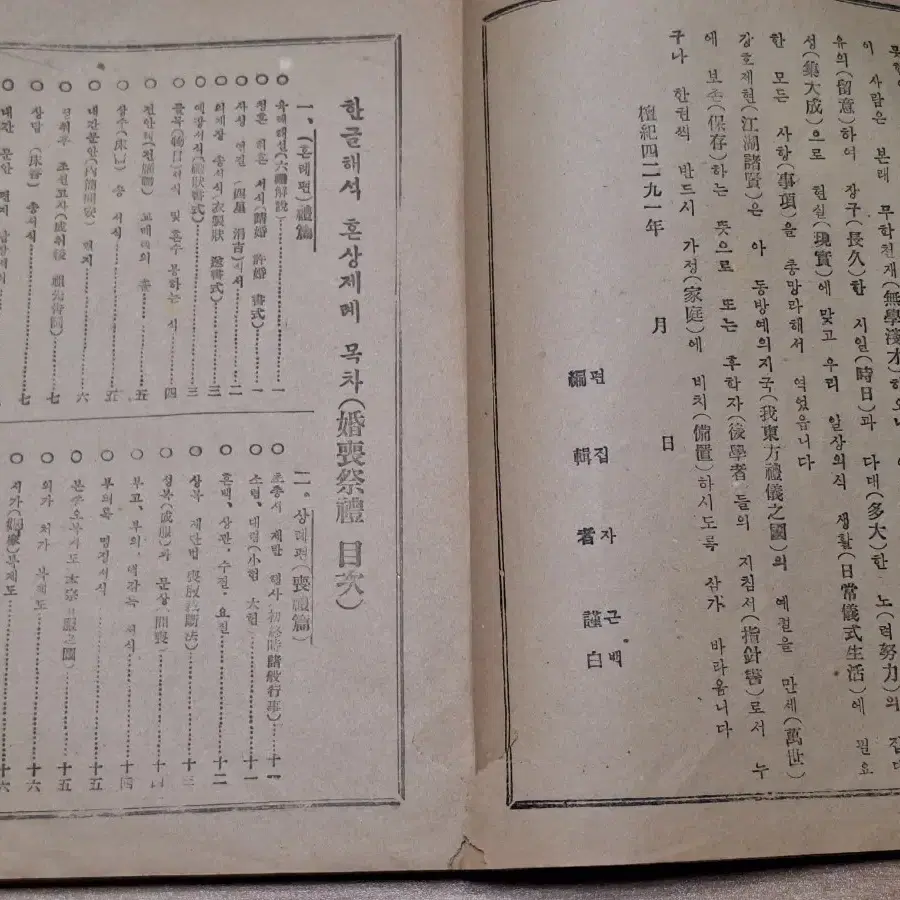 이 사람은 본래 무학천재(無學淺才)하오나
유의(留意)하여 장구(長久)한 시일(時日)과 다대(多大)한 노력(努力)의 집대
성(集大成)으로 현실(現實)에 맞고 우리 일상의식 생활(日常儀式生活)에 필요
한 모든 사항(事項)을 총망라해서 엮었읍니다
강호제현(江湖諸賢)은 아 동방예의지국(我東方禮儀之國)의 예절을 만세(萬世)
에 보존(保存)하는 뜻으로 또는 후학자(後學者)들의 지침서(指針書)로서 누
구나 한권씩 반드시 가정(家庭)에 비치(備置)하시도록 삼가 바라옵니다
檀紀四二九一年 月 日
편집자 근백
編輯者 謹白
한글해석 혼상제례 목차(婚喪祭禮 目次)
一、(혼례편)禮篇
○ 육례해설(六禮解說)……一
○ 청혼 허혼 서식(請婚 許婚 書式)……一
○ 사성 연길(四星 涓吉)서식……二
○ 의제장 송서식(衣製狀 送書式)……三
○ 예장서식(禮狀書式)……三
○ 물목(物目)서식 및 혼수 봉하는 식……四
○ 상수(床需) 송 서식……五
○ 내간문안(內簡問安) 편지……六
○ 성취후 조선고사(成娶後 祖先告辭)……七
○ 상답(床答) 송서식……七
二、상례편(喪禮篇)
○ 초종시 제반 행사(初終時諸般行事)……十一
○ 소렴、대렴(小殮 大殮)……十一
○ 혼백、상관、수질、요질……十二
○ 상복 제단법(喪服裁斷法)……十三
○ 성복(成服)과 문상(問喪)……十四
○ 부고、부의、서식……十四
○ 부의록 명정서식……十五
○ 본종오복지도……十五
○ 외가 처가 복제도……十六
○ 시가 복제도……十六